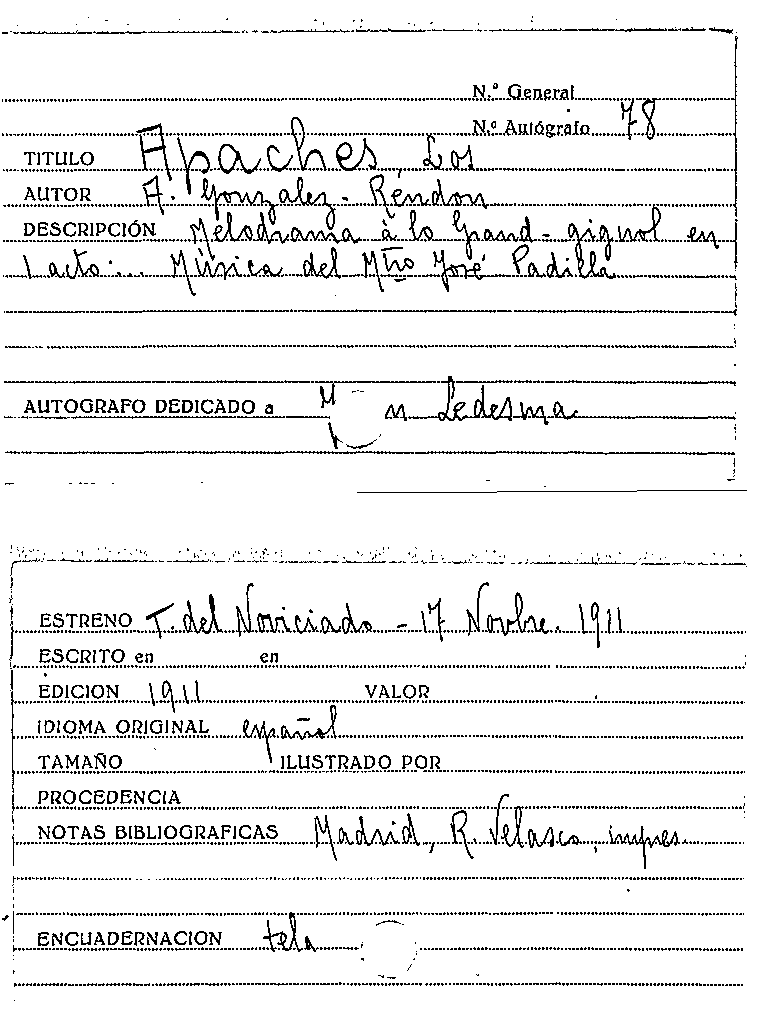 N.º General
N.º Autógrafo 78
TITULO Apaches, Los
AUTOR A. Gonzalez-Rendon
DESCRIPCIÓN Melodrama à lo Grand-gignol en
1 acto:... Música del Mtro José Padilla
AUTOGRAFO DEDICADO a Ledesma
ESTRENO T. del Noviciado - 17 Novbre. 1911
ESCRITO en en
EDICION 1911 VALOR
IDIOMA ORIGINAL español
TAMAÑO ILUSTRADO POR
PROCEDENCIA
NOTAS BIBLIOGRAFICAS Madrid, R. Velasco, impres.
ENCUADERNACION tela